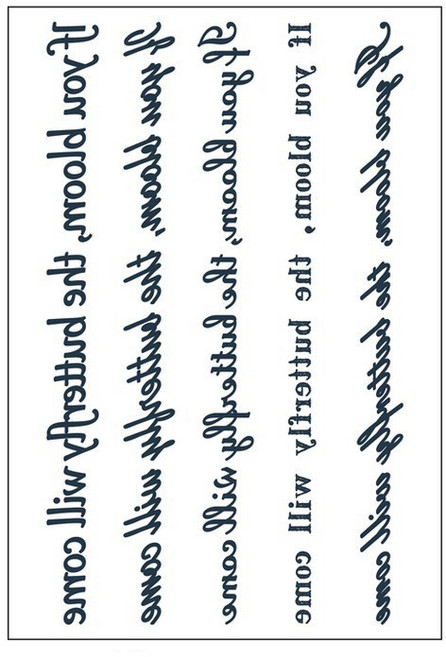 If you bloom, the butterfly will come
If you bloom, the butterfly will come
If you bloom, the butterfly will come
If you bloom, the butterfly will come
If you bloom, the butterfly will come